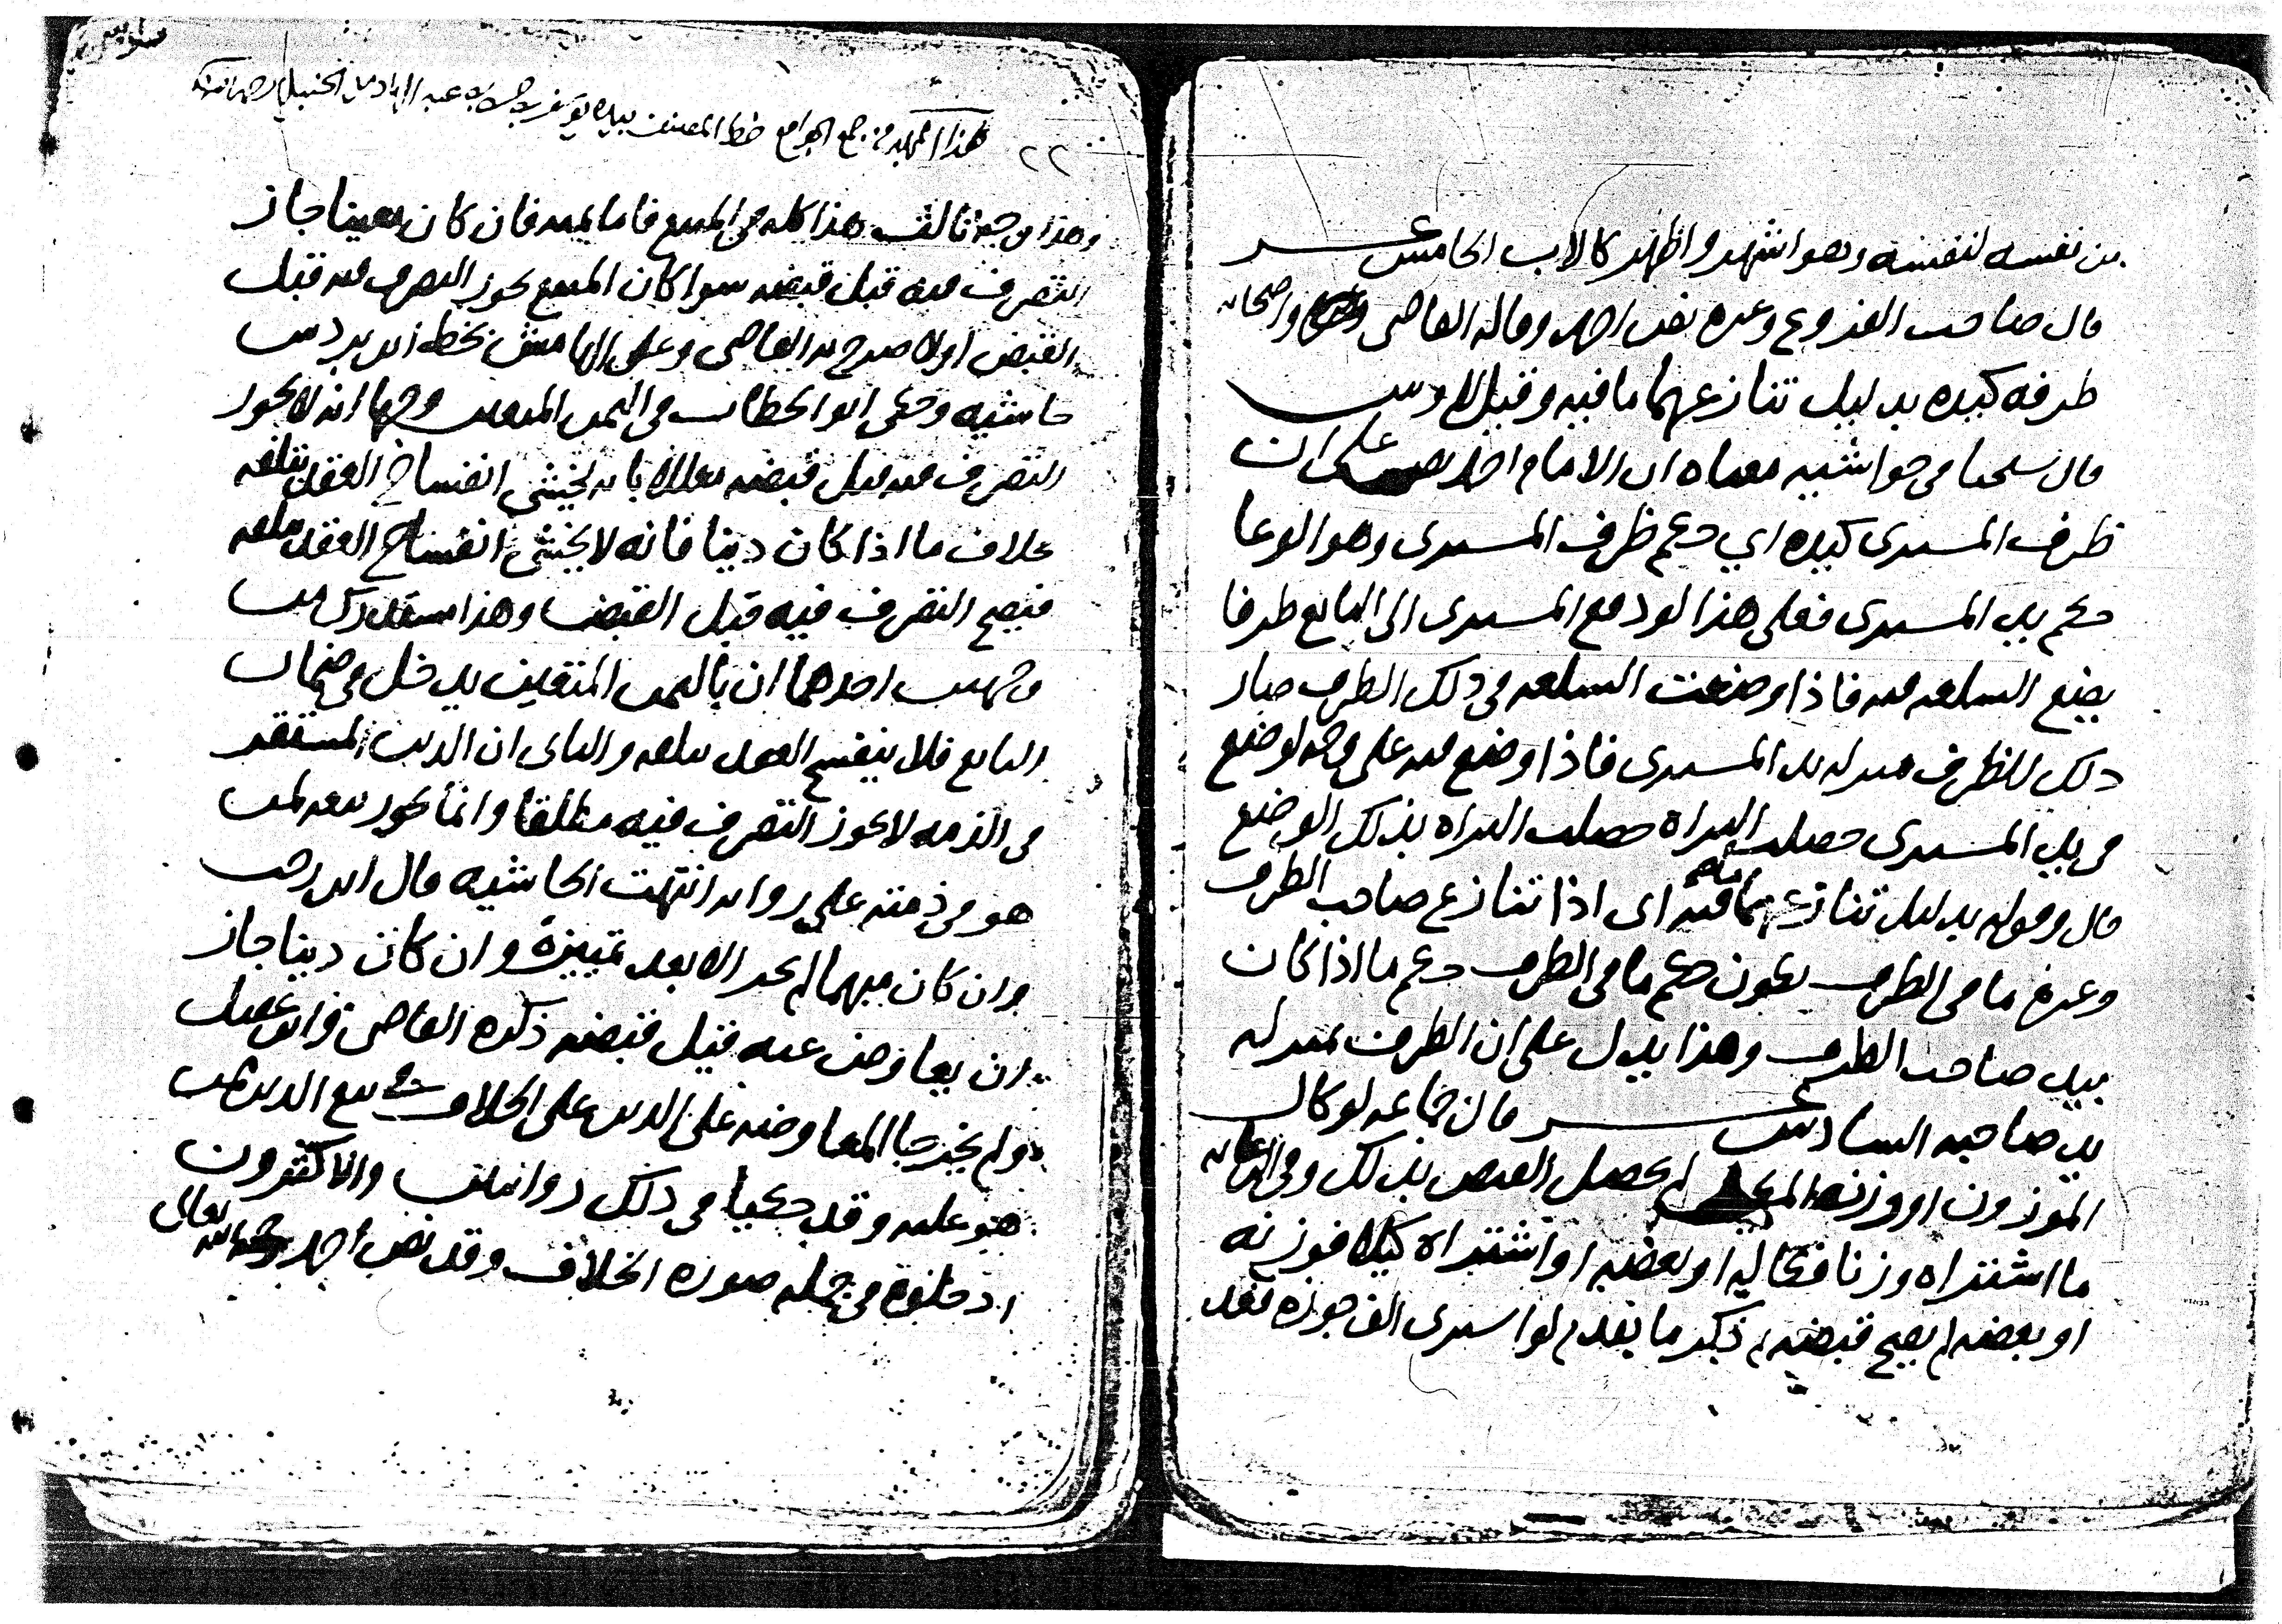 من نفسه لنفسه وهو اشهر واظهر كالاب الخامس عشر
قال صاحب الفروع وغيره نص احمد وقاله القاضي واصحابه
طرفه كيده بدليل تنازعهما ما فيه وقيل لا
قال شيخنا في حواشيه معناه ان الامام احمد نص على ان
ظرف المشتري كيده اي حكم ظرف المشتري وهو الوعا
حكم يد المشتري فعلى هذا لو دفع المشتري الى البايع ظرفا
يضع السلعه فيه فاذا وضعت السلعه في ذلك الظرف صار
ذلك الظرف منزله يد المشتري فاذا وضع فيه على وجه لو وضع
في يد المشتري حصلت البراة حصلت البراه بذلك الوضع
قال وقوله بدليل تنازعهما فيه اي اذا تنازع صاحب الظرف
وغيره ما في الظرف يكون حكم ما في الظرف حكم ما اذا كان
بيد صاحب الظرف وهذا يدل على ان الظرف بمنزله
يد صاحبه السادس عشر قال جماعه لو كال
الموزون او وزن المكيل لم يحصل القبض بذلك وفي الرعايه
ما اشتراه وزنا فكاله او بعضه او اشتراه كيلا فوزنه
او بعضه لم يصح قبضه ثم ذكر ما تقدم لو اشترى الف جوزه فعد
هذا المجلد من جمع الجوامع خط المصنف بيده يوسف بن عبد الهادي الحنبلي رحمه الله
٢٢
وهذا وجه ثالث هذا كله في المبيع فاما ثمنه فان كان معينا جاز
التصرف فيه قبل قبضه سوا كان المبيع يجوز التصرف فيه قبل
القبض او لا صرح به القاضي وعلى الهامش بخط ابن بردس
حاشيه وحكى ابو الخطاب في الثمن المعين وجها انه لا يجوز
التصرف فيه قبل قبضه معللا بانه يخشى انفساخ العقد بتلفه
بخلاف ما اذا كان دينا فانه لا يخشى انفساخ العقد بتلفه
فيصح التصرف فيه قبل القبض وهذا مستدرك من
وجهين احدهما ان بالثمن المتعين يدخل في ضمان
البايع فلا ينفسخ العقد بتلفه والثاني ان الدين المستقر
في الذمه لا يجوز التصرف فيه مطلقا وانما يجوز بيعه لمن
هو في ذمته على روايه انتهت الحاشيه قال ابن رجب
وان كان مبهما لم يجز الا بعد تمييزه وان كان دينا جاز
ان يعاوض عنه قبل قبضه ذكره القاضي وابن عقيل
ولم يخرجا المعاوضه على الدين على الخلاف في بيع الدين لمن
هو عليه وقد حكيا في ذلك روايتان والاكثرون
ادخلوه في جمله صوره الخلاف وقد نص احمد رحمه الله تعالى